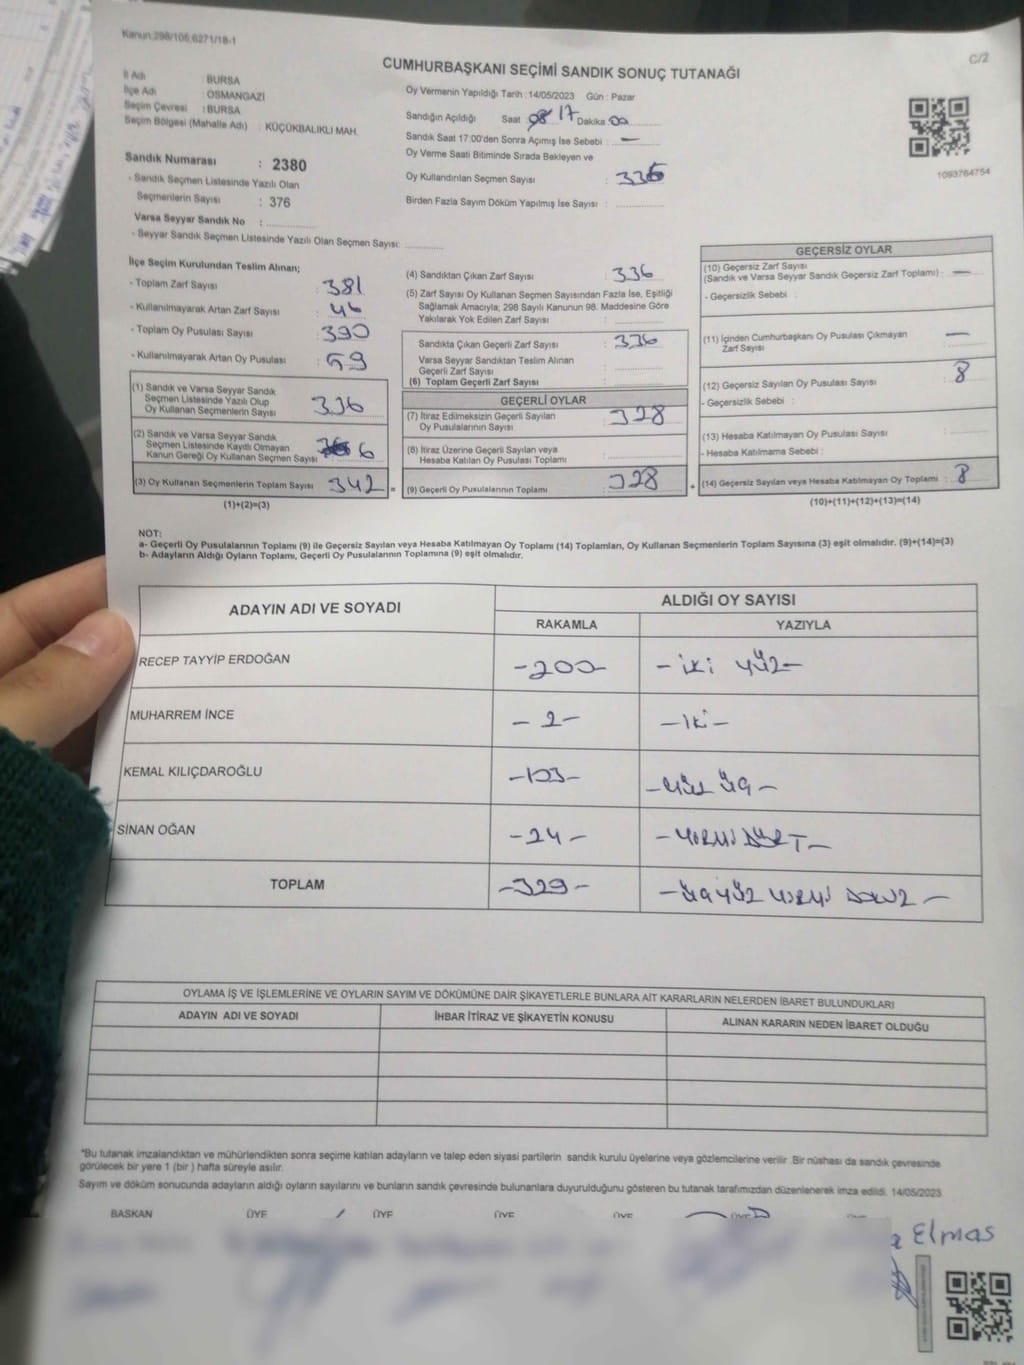 Kanun:298/105,6271/18-1
C/2
CUMHURBAŞKANI SEÇİMİ SANDIK SONUÇ TUTANAĞI
İl Adı : BURSA
İlçe Adı : OSMANGAZİ
Seçim Çevresi : BURSA
Seçim Bölgesi (Mahalle Adı) : KÜÇÜKBALIKLI MAH.
Sandık Numarası : 2380
- Sandık Seçmen Listesinde Yazılı Olan
Seçmenlerin Sayısı : 376
Varsa Seyyar Sandık No :
- Seyyar Sandık Seçmen Listesinde Yazılı Olan Seçmen Sayısı:
Oy Vermenin Yapıldığı Tarih : 14/05/2023 Gün : Pazar
Sandığın Açıldığı Saat 17 Dakika 00
Sandık Saat 17:00'den Sonra Açımış İse Sebebi : —
Oy Verme Saati Bitiminde Sırada Bekleyen ve
Oy Kullandırılan Seçmen Sayısı : 336
Birden Fazla Sayım Döküm Yapılmış İse Sayısı :
1093764754
İlçe Seçim Kurulundan Teslim Alınan;
- Toplam Zarf Sayısı : 381
- Kullanılmayarak Artan Zarf Sayısı : 46
- Toplam Oy Pusulası Sayısı : 390
- Kullanılmayarak Artan Oy Pusulası : 59
(1) Sandık ve Varsa Seyyar Sandık
Seçmen Listesinde Yazılı Olup
Oy Kullanan Seçmenlerin Sayısı 336
(2) Sandık ve Varsa Seyyar Sandık
Seçmen Listesinde Kayıtlı Olmayan
Kanun Gereği Oy Kullanan Seçmen Sayısı 6
(3) Oy Kullanan Seçmenlerin Toplam Sayısı : 342 =
(1)+(2)=(3)
(4) Sandıktan Çıkan Zarf Sayısı : 336
(5) Zarf Sayısı Oy Kullanan Seçmen Sayısından Fazla İse, Eşitliği
Sağlamak Amacıyla; 298 Sayılı Kanunun 98. Maddesine Göre
Yakılarak Yok Edilen Zarf Sayısı :
Sandıkta Çıkan Geçerli Zarf Sayısı : 336
Varsa Seyyar Sandıktan Teslim Alınan
Geçerli Zarf Sayısı :
(6) Toplam Geçerli Zarf Sayısı :
GEÇERLİ OYLAR
(7) İtiraz Edilmeksizin Geçerli Sayılan
Oy Pusulalarının Sayısı : 328
(8) İtiraz Üzerine Geçerli Sayılan veya
Hesaba Katılan Oy Pusulası Toplamı :
(9) Geçerli Oy Pusulalarının Toplamı : 328 +
GEÇERSİZ OYLAR
(10) Geçersiz Zarf Sayısı
(Sandık ve Varsa Seyyar Sandık Geçersiz Zarf Toplamı) : —
- Geçersizlik Sebebi :
(11) İçinden Cumhurbaşkanı Oy Pusulası Çıkmayan
Zarf Sayısı : —
(12) Geçersiz Sayılan Oy Pusulası Sayısı : 8
- Geçersizlik Sebebi :
(13) Hesaba Katılmayan Oy Pusulası Sayısı :
- Hesaba Katılmama Sebebi :
(14) Geçersiz Sayılan veya Hesaba Katılmayan Oy Toplamı : 8
(10)+(11)+(12)+(13)=(14)
NOT:
a- Geçerli Oy Pusulalarının Toplamı (9) ile Geçersiz Sayılan veya Hesaba Katılmayan Oy Toplamı (14) Toplamları, Oy Kullanan Seçmenlerin Toplam Sayısına (3) eşit olmalıdır. (9)+(14)=(3)
b- Adayların Aldığı Oyların Toplamı, Geçerli Oy Pusulalarının Toplamına (9) eşit olmalıdır.
ADAYIN ADI VE SOYADI ALDIĞI OY SAYISI
RAKAMLA YAZIYLA
RECEP TAYYİP ERDOĞAN -200- -iki yüz-
MUHARREM İNCE -2- -iki-
KEMAL KILIÇDAROĞLU -103- -yüz üç-
SİNAN OĞAN -24- -YİRMİ DÖRT-
TOPLAM -329- -üçyüz yirmi dokuz-
OYLAMA İŞ VE İŞLEMLERİNE VE OYLARIN SAYIM VE DÖKÜMÜNE DAİR ŞİKAYETLERLE BUNLARA AİT KARARLARIN NELERDEN İBARET BULUNDUKLARI
ADAYIN ADI VE SOYADI İHBAR İTİRAZ VE ŞİKAYETİN KONUSU ALINAN KARARIN NEDEN İBARET OLDUĞU
*Bu tutanak imzalandıktan ve mühürlendikten sonra seçime katılan adayların ve talep eden siyasi partilerin sandık kurulu üyelerine veya gözlemcilerine verilir .Bir nüshası da sandık çevresinde
görülecek bir yere 1 (bir ) hafta süreyle asılır.
Sayım ve döküm sonucunda adayların aldığı oyların sayılarını ve bunların sandık çevresinde bulunanlara duyurulduğunu gösteren bu tutanak tarafımızdan düzenlenerek imza edildi. 14/05/2023
BAŞKAN ÜYE ÜYE ÜYE ÜYE ÜYE
Elmas